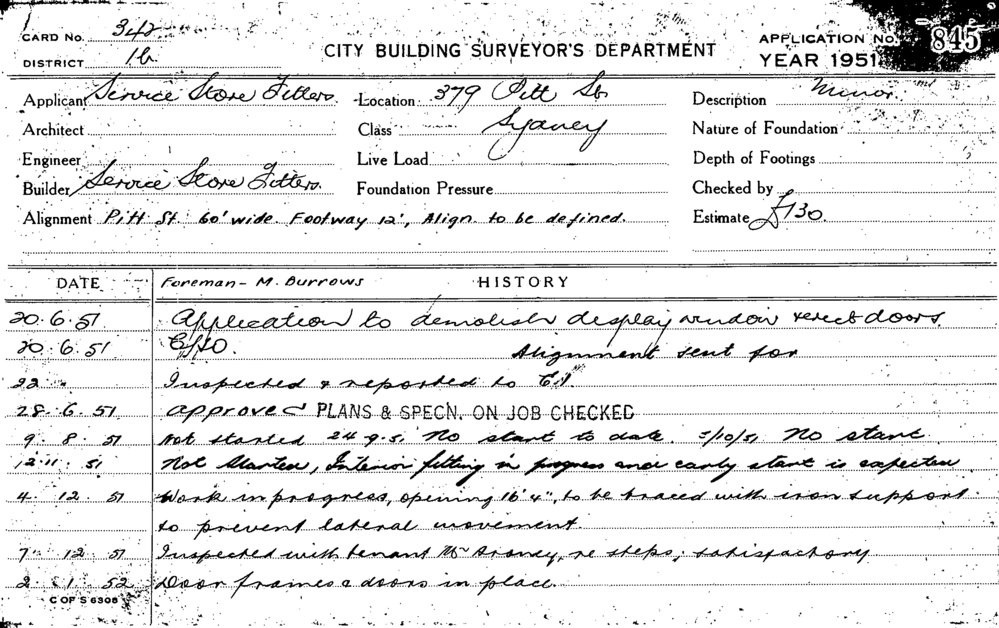 CARD No. 342
DISTRICT 1b
CITY BUILDING SURVEYOR'S DEPARTMENT
APPLICATION No. 845
YEAR 1951
Applicant Service Store Fitters. Location 379 Pitt St. Description Minor.
Architect Class Sydney Nature of Foundation
Engineer Live Load Depth of Footings
Builder Service Store Fitters. Foundation Pressure Checked by
Alignment Pitt St. 60' wide. Footway 12', Align. to be defined Estimate £130.
DATE Foreman - M. Burrows HISTORY
20.6.51 Application to demolish display window & erect doors.
20.6.51 Alignment sent for
22 " Inspected & reported to C.I.
28.6.51 approved PLANS & SPECN. ON JOB CHECKED
9.8.51 Not started 24.9.51 No start to date. 5/10/51 No start
12.11.51 Not Started, Interior fitting in progress and early start is expected
4.12.51 Work in progress, opening 16'4", to be braced with iron support
to prevent lateral movement.
7.12.51 Inspected with tenant Mr re steps; satisfactory
2.1.52 Door frames & doors in place.
C OF S 6306